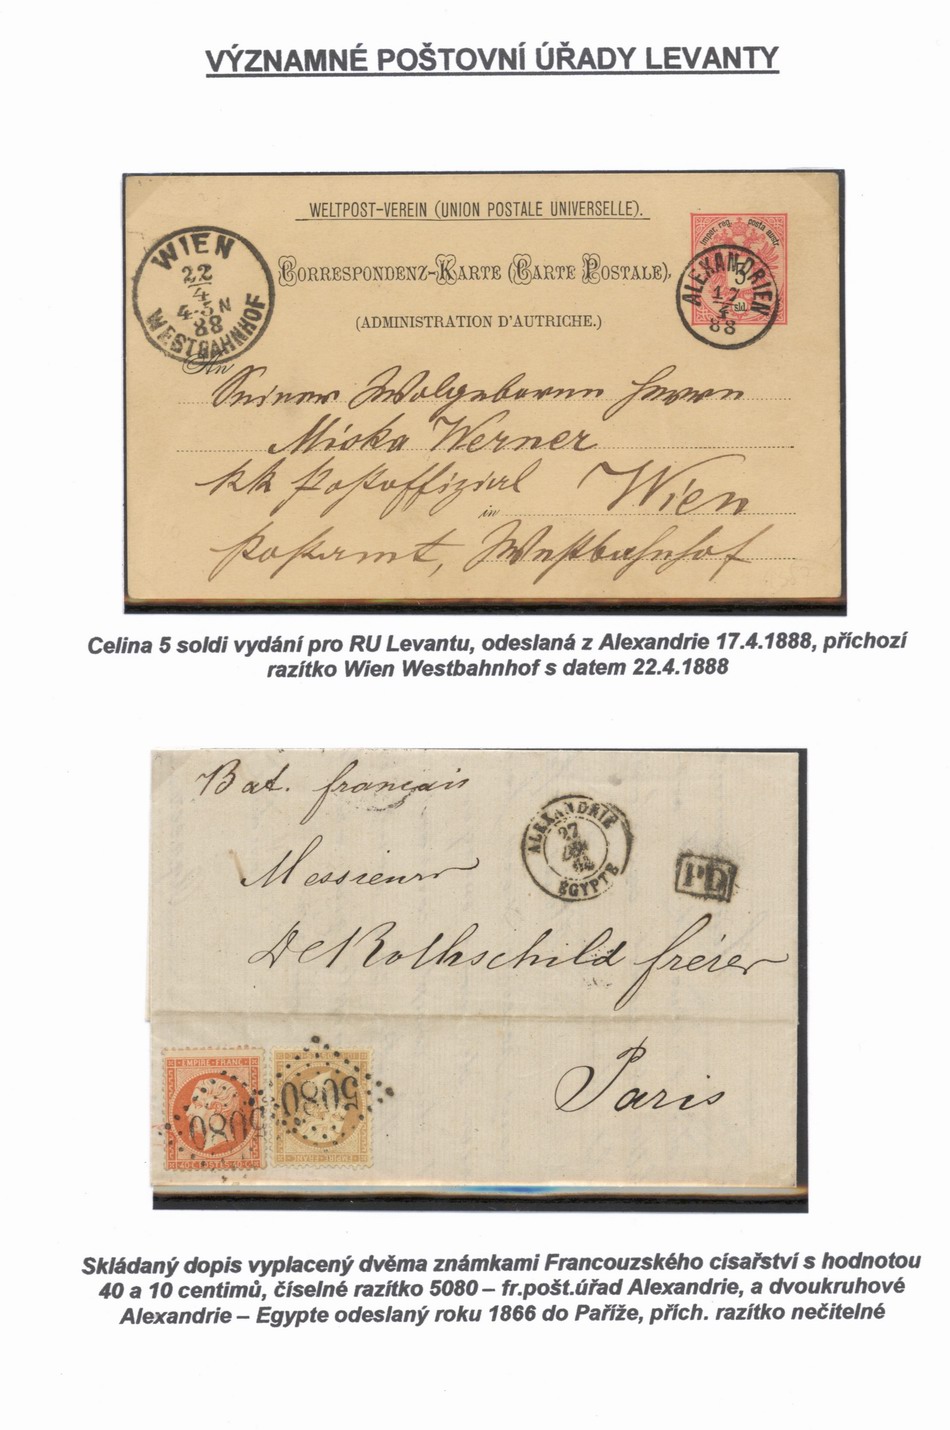 VÝZNAMNÉ POŠTOVNÍ ÚŘADY LEVANTY
WELTPOST-VEREIN (UNION POSTALE UNIVERSELLE).
CORRESPONDENZ-KARTE (CARTE POSTALE),
(ADMINISTRATION D'AUTRICHE.)
WIEN
22
4
4-5 N
88
WESTBAHNHOF
ALEXANDRIEN
17
4
88
5
sld.
An
Seiner Wolgeboren Herrn
Miska Werner
kk Postoffizial Wien
in
Postamt, Westbahnhof
Celina 5 soldi vydání pro RU Levantu, odeslaná z Alexandrie 17.4.1888, příchozí
razítko Wien Westbahnhof s datem 22.4.1888
Bat. français
ALEXANDRIE
27
EGYPTE
PD
Messieurs
De Rothschild frères
Paris
EMPIRE FRANC
5080
5080
Skládaný dopis vyplacený dvěma známkami Francouzského císařství s hodnotou
40 a 10 centimů, číselné razítko 5080 – fr.pošt.úřad Alexandrie, a dvoukruhové
Alexandrie – Egypte odeslaný roku 1866 do Paříže, přích. razítko nečitelné